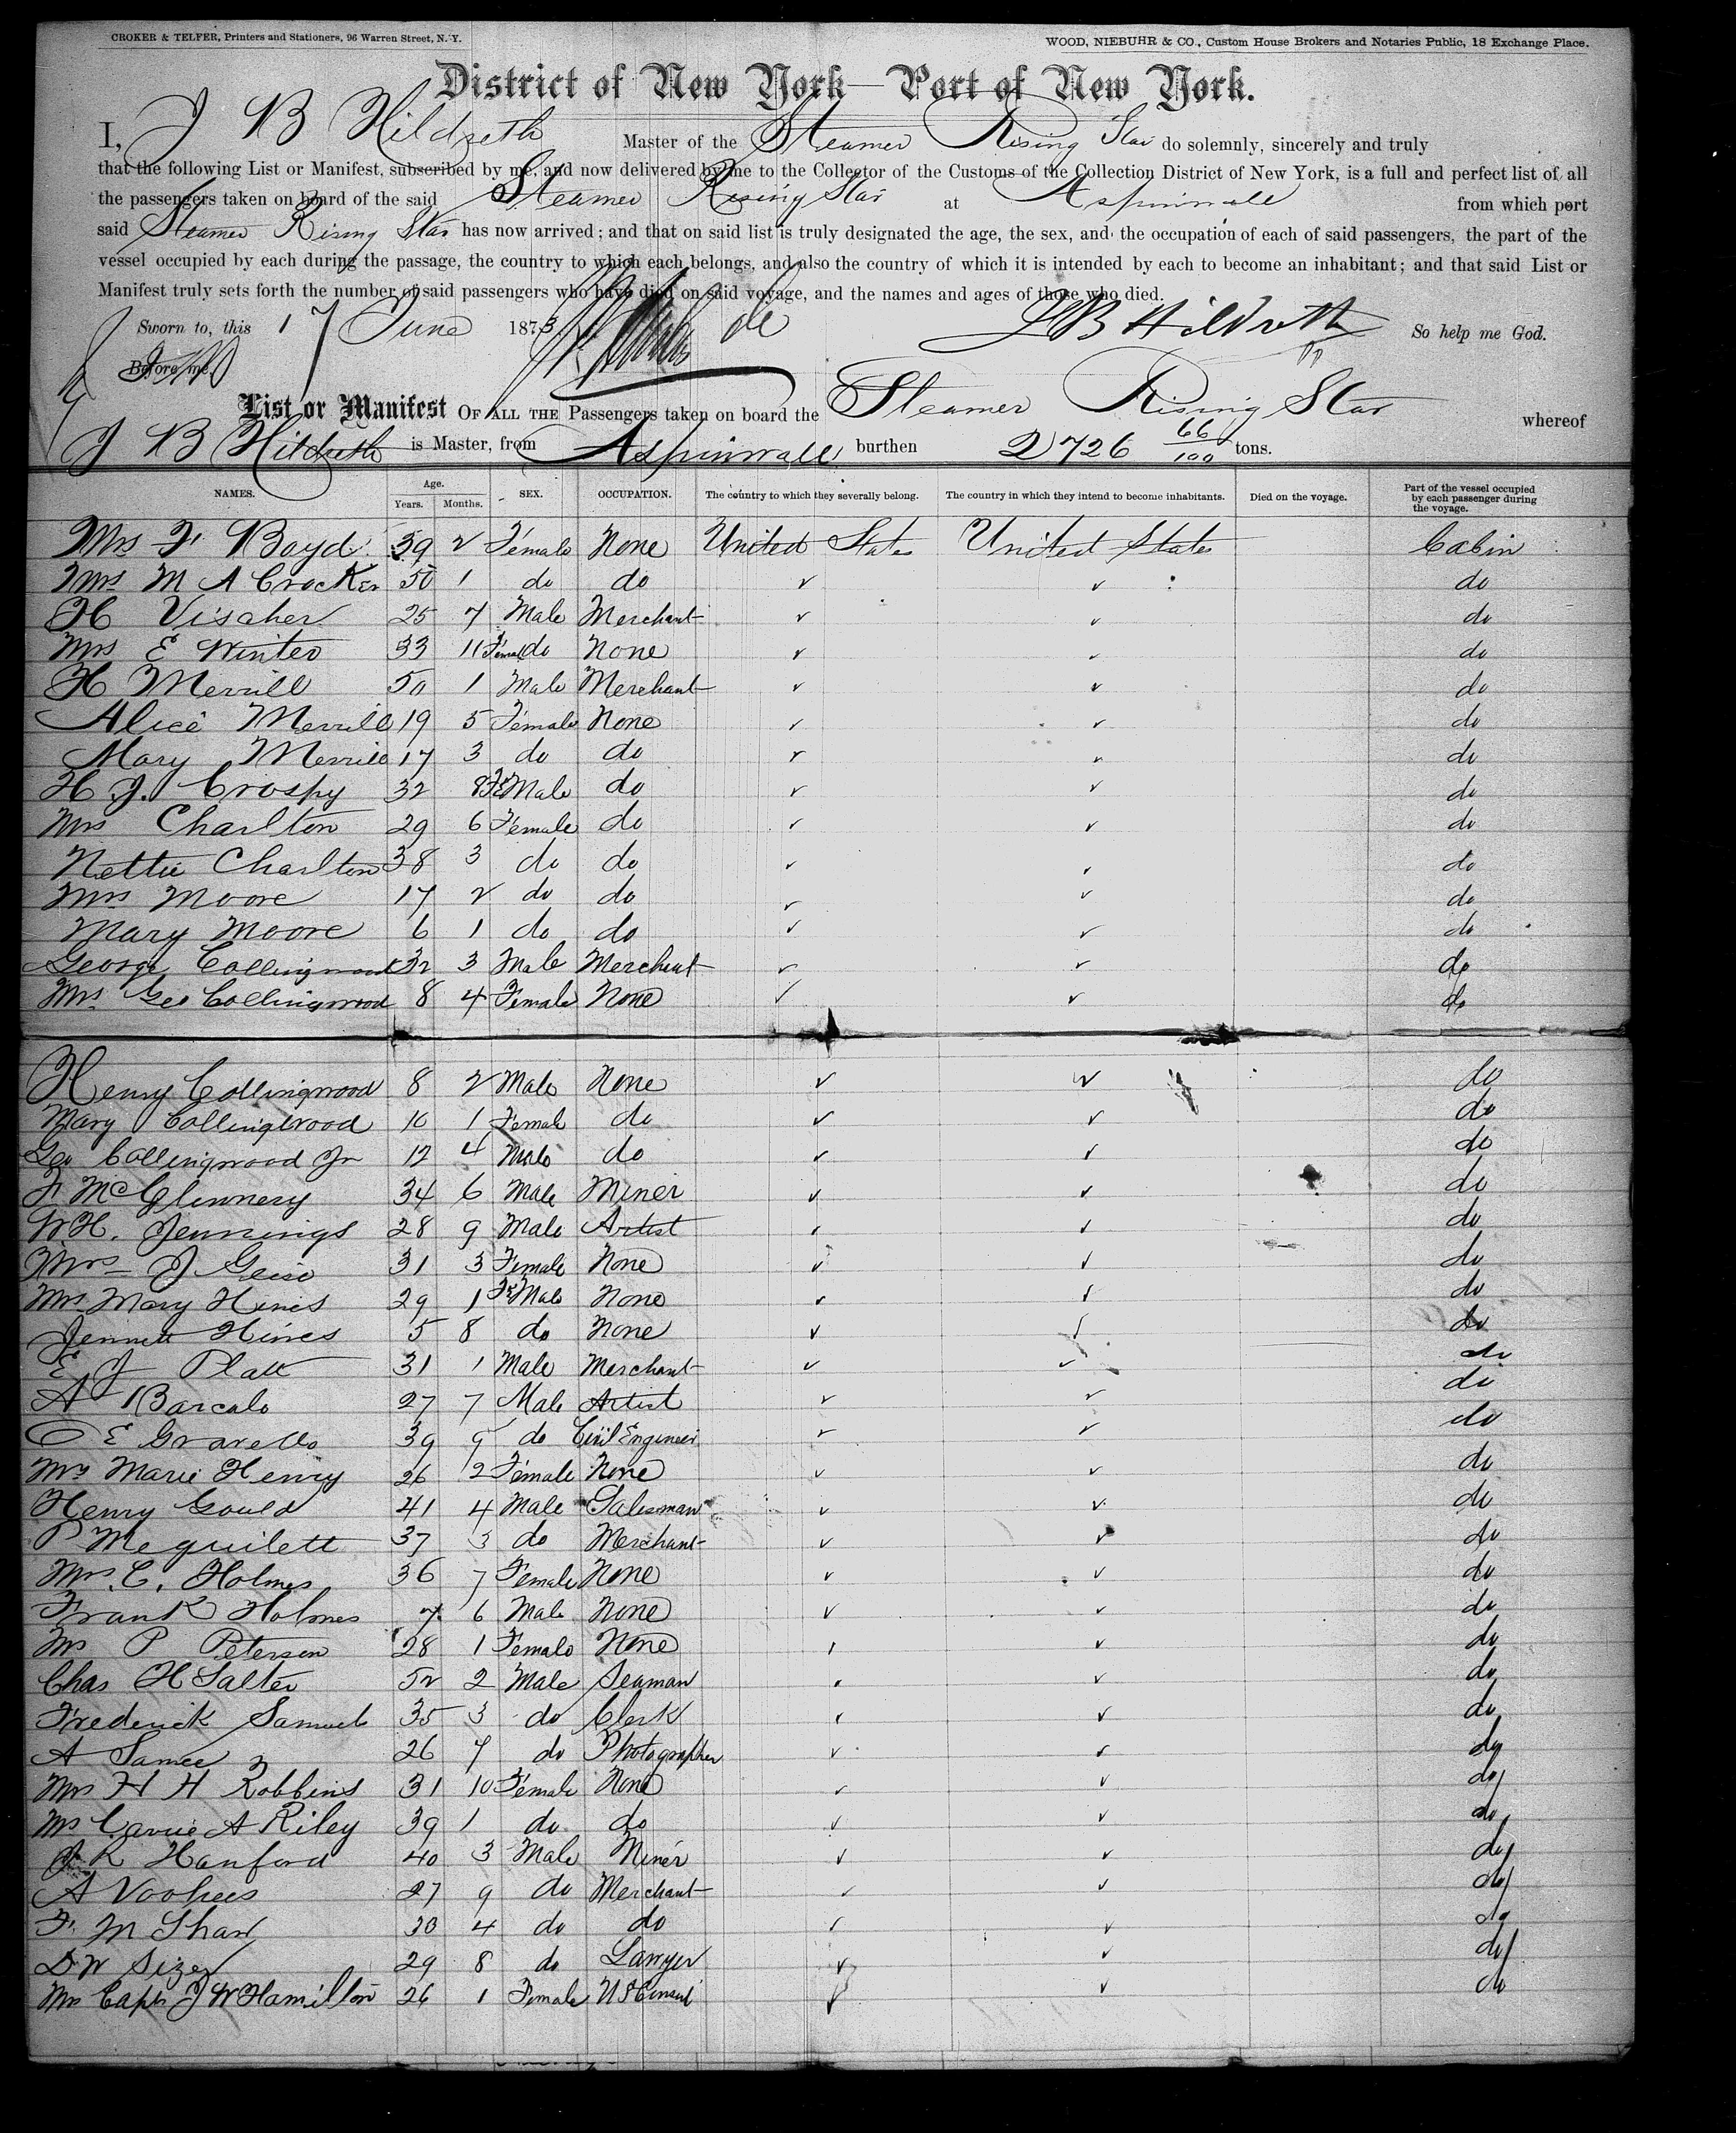 CROKER & TELFER, Printers and Stationers, 96 Warren Street, N. Y. WOOD, NIEBUHR & CO., Custom House Brokers and Notaries Public, 18 Exchange Place.
District of New York—Port of New York.
I, J B Hildreth Master of the Steamer Rising Star do solemnly, sincerely and truly
that the following List or Manifest, subscribed by me, and now delivered by me to the Collector of the Customs of the Collection District of New York, is a full and perfect list of all
the passengers taken on board of the said Steamer Rising Star at Aspinwall from which port
said Steamer Rising Star has now arrived; and that on said list is truly designated the age, the sex, and the occupation of each of said passengers, the part of the
vessel occupied by each during the passage, the country to which each belongs, and also the country of which it is intended by each to become an inhabitant; and that said List or
Manifest truly sets forth the number of said passengers who have died on said voyage, and the names and ages of those who died.
Sworn to, this 17 June 1873 J B Hildreth So help me God.
Before me,
List or Manifest OF ALL THE Passengers taken on board the Steamer Rising Star whereof
J B Hildreth is Master, from Aspinwall burthen 2726 66/100 tons.
NAMES. Age. Years. Months. SEX. OCCUPATION. The country to which they severally belong. The country in which they intend to become inhabitants. Died on the voyage. Part of the vessel occupied by each passenger during the voyage.
Mrs F Boyd 39 2 Female None United States United States Cabin
Mrs M A Crocker 50 1 do do do
H Vischer 25 7 Male Merchant do
Mrs E Winter 33 11 Female do None do
H Merrill 50 1 Male Merchant do
Alice Merrill 19 5 Female None do
Mary Merrill 17 3 do do do
H J. Crospy 32 8 FeMale do do
Mrs Charlton 29 6 Female do do
Nettie Charlton 38 3 do do do
Mrs Moore 17 2 do do do
Mary Moore 6 1 do do do
George Collingwood 32 3 Male Merchant do
Mrs Geo Collingwood 8 4 Female None do
Henry Collingwood 8 2 Male None do
Mary Collingwood 10 1 Female do do
Geo Collingwood Jr 12 4 Male do do
F McGlinnery 34 6 Male Miner do
W H. Jennings 28 9 Male Artist do
Mrs J Geise 31 3 Female None do
Mrs Mary Hines 29 1 FeMale None do
Jennett Hines 5 8 do None do
E J Platt 31 1 Male Merchant do
A Barcalo 27 7 Male Artist do
E Gravello 39 9 do Civil Engineer do
Mrs Marie Henry 26 2 Female None do
Henry Gould 41 4 Male Salesman do
P Meguilett 37 3 do Merchant do
Mrs C. Holmes 36 7 Female None do
Frank Holmes 7 6 Male None do
Mrs P Peterson 28 1 Female None do
Chas H Salter 52 2 Male Seaman do
Frederick Samuels 35 3 do Clerk do
A 26 7 do Photographer do
Mrs H H Robbins 31 10 Female None do
Mrs Carrie A Riley 39 1 do do do
R Hanford 40 3 Male Miner do
A Voohees 27 9 do Merchant do
F. M Shaw 30 4 do do do
D W Sizer 29 8 do Lawyer do
Mrs Capt J W Hamilton 26 1 Female U S Consul do